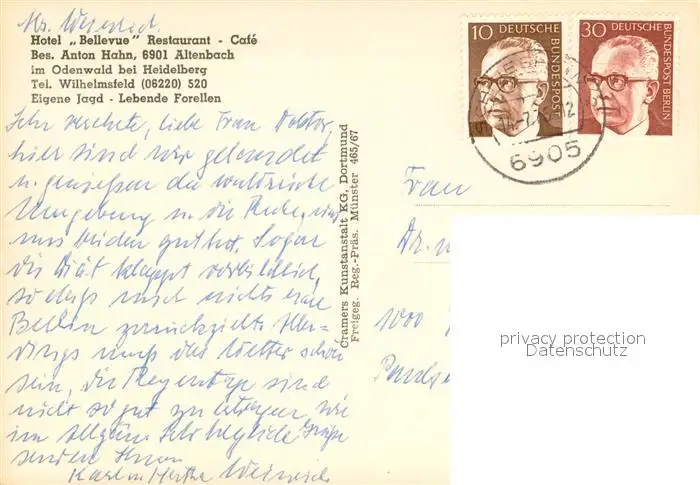 Hotel „Bellevue" Restaurant - Café
Bes. Anton Hahn, 6901 Altenbach
im Odenwald bei Heidelberg
Tel. Wilhelmsfeld (06220) 520
Eigene Jagd - Lebende Forellen
Sehr verehrte, liebe Frau Doktor,
hier sind wir gelandet
u. genießen die waldreiche
Umgebung u. die Ruhe, die
uns beiden gut tut. Sogar
die Diät klappt vorbildlich,
so daß uns nichts nach
Berlin zurückzieht. Aller-
dings muß das Wetter schön
sein, die Regentage sind
nicht so gut zu ertragen, wie
im allgem. Sehr herzliche Grüße
senden Ihnen
Karl u. Hertha Weinreich
Cramers Kunstanstalt KG, Dortmund
Freigeg. Reg.-Präs. Münster 465/67
10 DEUTSCHE BUNDESPOST
30 DEUTSCHE BUNDESPOST BERLIN
6905
Frau
Dr.
1000
privacy protection
Datenschutz